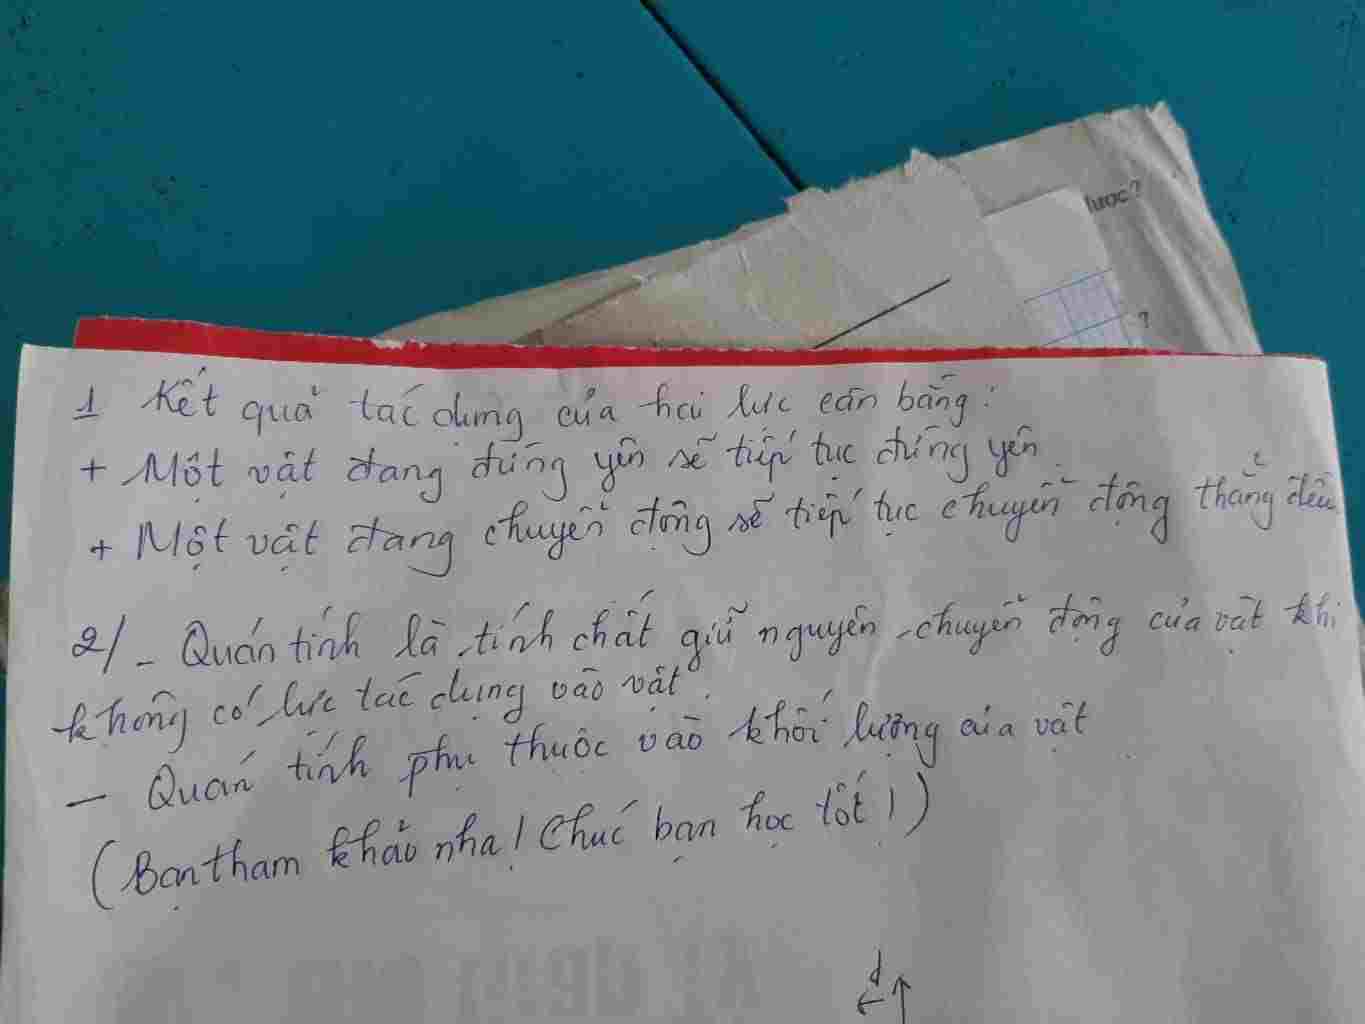 lược ?
?
1 Kết quả tác dụng của hai lực cân bằng:
+ Một vật đang đứng yên sẽ tiếp tục đứng yên
+ Một vật đang chuyển động sẽ tiếp tục chuyển động thẳng đều
2/ - Quán tính là tính chất giữ nguyên chuyển động của vật khi
không có lực tác dụng vào vật.
- Quán tính phụ thuộc vào khối lượng của vật
(Bạn tham khảo nha! Chúc bạn học tốt!)
d